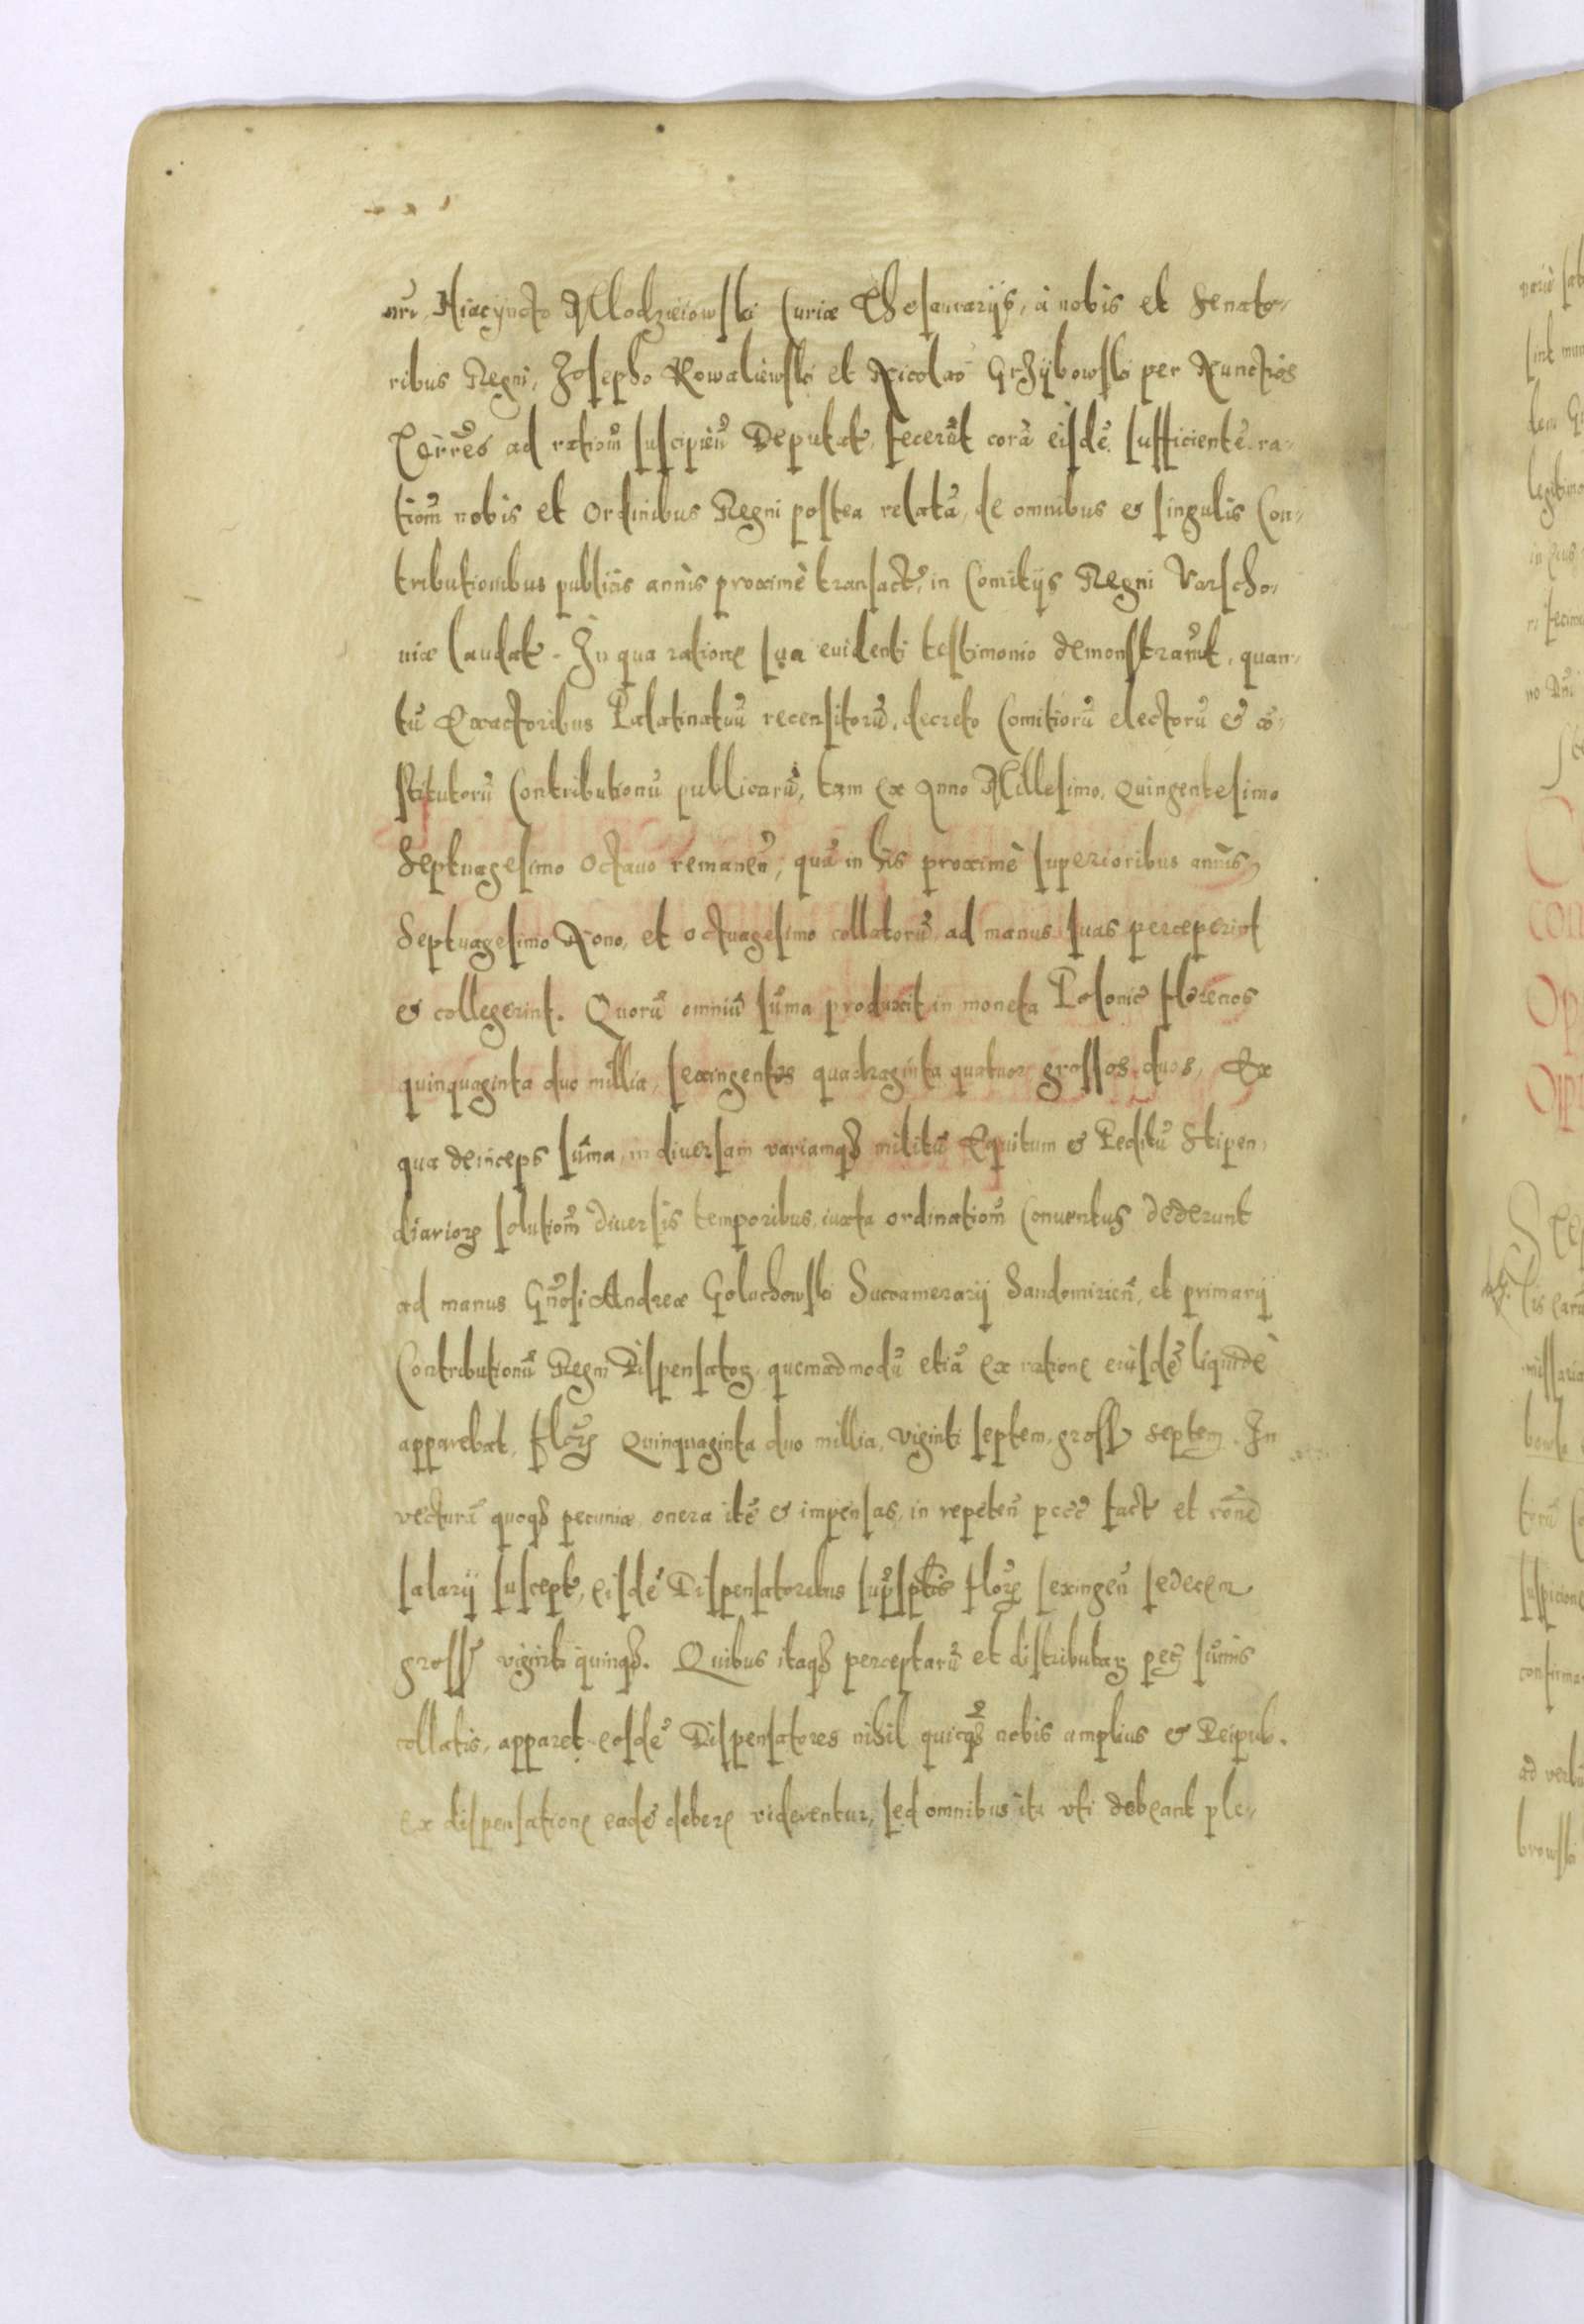 nrĩ, Hiacyncto Mlodzieiowski Curiæ Thesaurarijs, à nobis et Senato-
ribus Regni, Josepho Kowaliewski et Nicolao Grzÿbowski per Nunctios
Terrẽs ad rationẽ suscipien̄ Deputat, fecerũt corã eisdẽ sufficientẽ ra-
tionẽ nobis et ordinibus Regni postea relatã, de omnibus & singulis Con-
tributionibus publicis annis proximè transact, in Comitijs Regni Varscho-
uiæ laudat. In qua ratione sua euidenti testimonio demonstrarũt, quan-
tũ Exactoribus Palatinatuũ recensitorũ, decreto Comitiorũ electorũ & cõ-
stitutorũ Contributionũ publicarũ, tam ex Anno Millesimo, Quingentesimo
Septuagesimo Octauo remanen̄, quã in his proximè superioribus annis
Septuagesimo Nono, et octuagesimo collatorũ ad manus suas perceperint
& collegerint. Quorũ omniũ sũma produxit in moneta Polonicẽ florenos
quinquaginta duo millia, sexingentos quadraginta quatuor grossos duos, Ex
qua deinceps sũma, in diuersam variamqȝ militũ Equitum & Peditũ Stipen-
diarioꝝ solutionẽ diuersis temporibus iuxta ordinationẽ Conuentus dederunt
ad manus Gn̄osi Andreæ Goluchowski Succamerarij Sandomirien̄, et primarij
Contributionũ Regni Dispensatoꝝ, quemadmodũ etiã ex ratione eiusdẽ liquidè
apparebat, floꝝ Quinquaginta duo millia, viginti septem, gross septem. In
vecturã quoqȝ pecuniæ onera itẽ & impensas, in repeten̄ pecc̄ fact et rõne
salarij suscept, eisdẽ Dispensatoribus sup̃sptis floꝝ sexingen̄ sedecem
gross viginti quinqȝ. Quibus itaqȝ perceptarũ et distributaꝝ pec̄ sũmis
collatis, apparet eosdẽ Dispensatores nihil quicqȝ nobis amplius & Reipub.
ex dispensatione eadẽ debere viderentur, sed omnibus ita vti debeant ple-